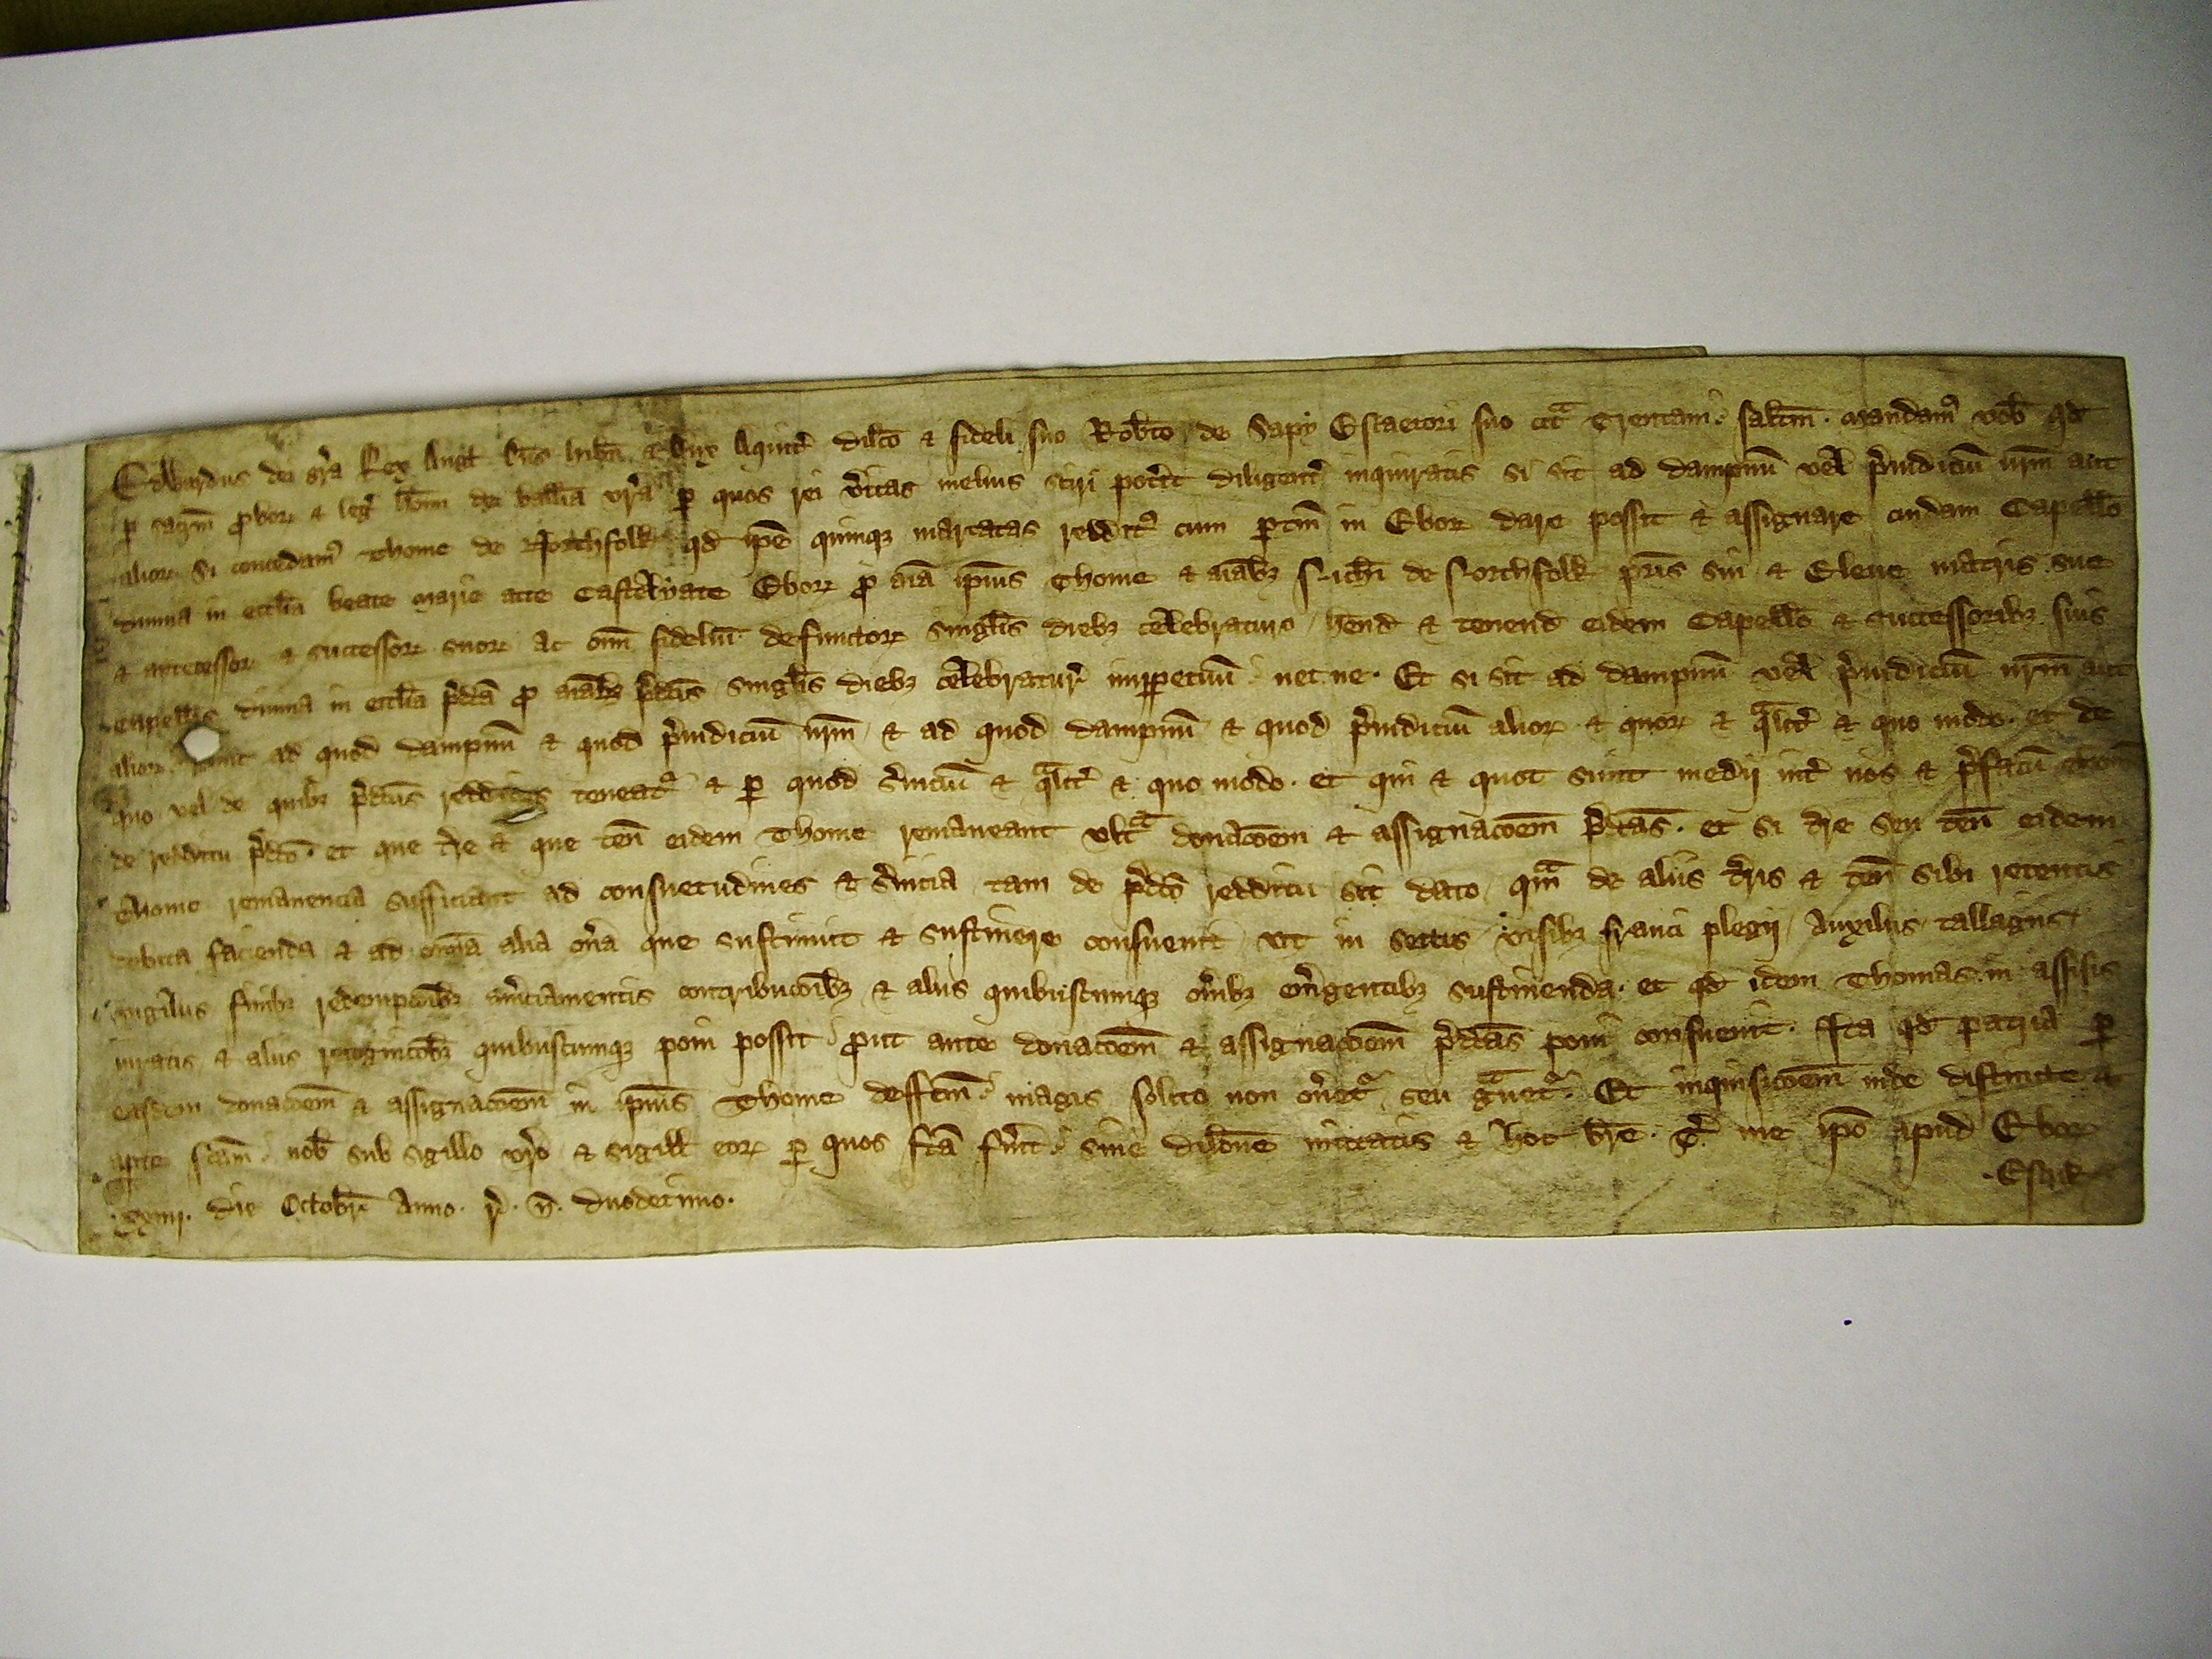 Edwardus dei gr̃a Rex Angl̃ Dñs Hibn̄ & Dux Aquit̃ dil̃co & fideli suo Rob̃to de Sapy Escaetori suo cit̃ª Trentam sal̃tm. Mandam⁹ vob̃ qd̃
p̱ sacr̃m ꝓbor̨ & leg̃ hõm de ballia vr̃a p̱ quos rei v̓itas melius sciri pot̓it diligent̓ inquiratis si sit ad dampnũ vel p̓iudiciũ nr̃m aut
alior̨ si concedam⁹ Thome de Northfolk qd̃ ip̃e quinqꝫ marcatas reddit⁹ cum ptin̄ in Ebor̨ dare possit & assignare cuidam Capell̃o
diuina in eccl̃ia beate Marie atte Castelyate Ebor̨ ꝓ aĩa ip̃ius Thome & aĩabꝫ Nich̃i de Northfolk pr̃is sui & Elene matris sue
& antecessor̨ & successor̨ suor̨ ac om̃ fideliũ defunctor̨ singl̃is diebꝫ celebraturo hend̃ & tenend̃ eidem Capell̃o & successoribꝫ suis
Capell̃is diuina in eccl̃ia p̓dc̃a ꝓ aĩabꝫ p̓dc̃is singl̃is diebꝫ celebratur̃ imp̱petuũ necne. Et si sit ad dampnũ vel p̓iudiciũ nr̃m aut
alior̨ tunc ad quod dampnũ & quod p̓iudiciũ nr̃m & ad quod dampnũ & quod p̓iudiciũ alior̨ & quor̨ & qªlit̓ & quo modo. et de
quo vel de quibꝫ p̓dc̃us redditus teneat᷑ & p̱ quod s̓uiciũ & qªlit̓ & quo modo. et qui & quot sunt medij int̓ nos & p̓fatũ Thom̃
de redditu p̓dc̃o. et que t̓re & que ten̄ eidem Thome remaneant ultª donac̃oem & assignac̃oem p̓dc̃as. et si t̓re seu ten̄ eidem
Thome remanencia sufficiant ad consuetudines & s̓uicia tam de p̓dc̃o redditu sic dato qªm de aliis t̓ris & ten̄ sibi retentis
debita facienda & ad om̃ia alia on̓a que sustinuit & sustinere consueuit vt in sectis visibꝫ franci plegij auxiliis tallagiis
vigiliis finibꝫ redempc̃oibꝫ am̓ciamentis contribuc̃oibꝫ & aliis quibuscumqꝫ on̓ibꝫ em̓gentibꝫ sustinenda. et qd̃ idem Thomas in assisis
iuratis & aliis recognic̃oibꝫ quibuscumqꝫ poni possit ꝓut ante donac̃oem & assignac̃oem p̓dc̃as poni consueuit. Ita qd̃ patria p̱
easdem donac̃oem & assignac̃oem in ip̃ius Thome deffc̃m magis solito non on̓et᷑ seu gªuet᷑. Et inquisic̃oem inde distincte &
ap̱te fc̃am nob̃ sub sigillo vr̃o & sigill̃ eor̨ p̱ quos fc̃a fu̓it sine dil̃one mittatis & hoc br̃e. T̓. me ip̃o apud Ebor̨
xxiiij. die Octobr̃ Anno. r̃. n̄. duodecimo.